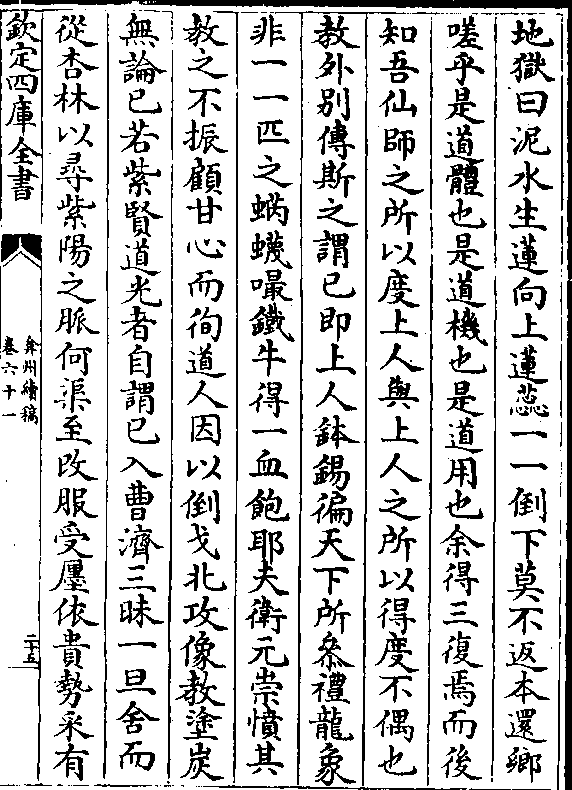 地獄曰泥水生蓮向上蓮蕊一一倒下莫不返本還鄉
嗟乎是道體也是道機也是道用也余得三復焉而後
知吾仙師之所以度上人與上人之所以得度不偶也
教外別傳斯之謂已即上人鉢錫徧天下所叅禮龍象
非一一匹之蝸蟣嘬鐵牛得一血飽耶夫衛元崇憤其
教之不振顧甘心而徇道人因以倒戈北攻像教塗炭
無論已若紫賢道光者自謂已入曹濟三昧一旦舍而
從杏林以尋紫陽之脈何渠至改服受廛依貴勢采有
欽定四庫全書
弇州續稿
卷六十一
二十五